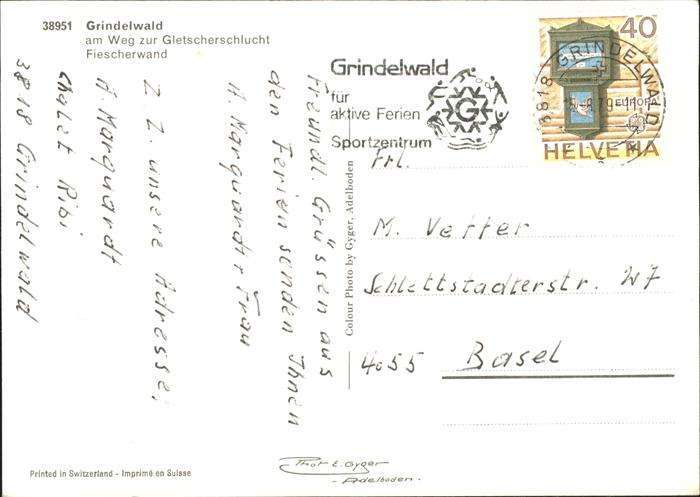 38951 Grindelwald
am Weg zur Gletscherschlucht
Fiescherwand
Grindelwald
für
aktive Ferien
Sportzentrum
G
3818 GRINDELWALD
40
EUROPA
HELVETIA
Freundl Grüssen aus
den Ferien senden Ihnen
A. Marquardt + Frau
Z. Z. unsere Adresse:
A Marquardt
Chalet Ribi
3818 Grindelwald
Colour Photo by Gyger, Adelboden
Frl.
M. Vetter
Schlettstadterstr. 47
4055 Basel
Printed in Switzerland - Imprimé en Suisse
Phot E. Gyger
- Adelboden -